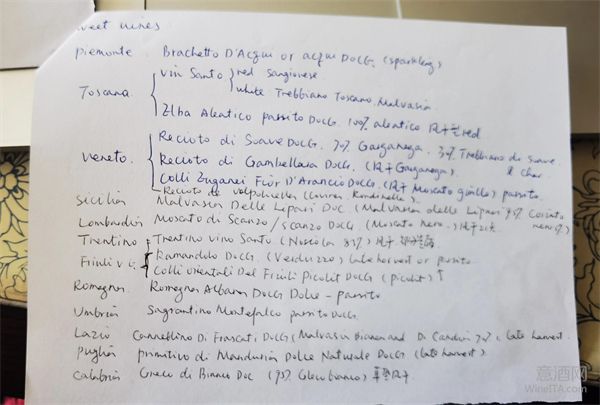 weet wines
piemonte Brachetto D'Acqui or acqui DOCG. (sparkling)
Toscana vin Santo red Sangiovese
white Trebbiano Toscano, Malvasia
Elba Aleatico passito DOCG. 100% aleatico 风干型red
veneto Recioto di Soave DOCG. 70% Garganega. 30% Trebbiano di Soave
& Char
Recioto di Gambellara DOCG. (风干Garganega).
Colli Euganei Fior D'Arancio DOCG (风干 Moscato giallo) passito.
Recioto de valpolicella (Corvina. Rondinella).
Sicilia Malvasia Delle Lipari DOC (Malvasia delle Lipari 95% Corinto
nero 5%)
Lombardia Moscato di Scanzo/scanzo DOCG (Moscato nero.) 风干
Trentino Trentino vino Santo (Nosiola 85%) 风干
Friuli v.G. Ramandolo DOCG (Verduzzo) late harvest or passito
Colli orientali Del Friuli Picolit DOCG (picolit) ↑
Romagna Romagna Albana DOCG Dolce - passito
Umbria Sagrantino Montefalco passito DOCG.
Lazio Cannellino Di Frascati DOCG (Malvasia Bianca and Di Candia 70%, late harvest.
puglia primitivo di Manduria Dolce Naturale DOCG (late harvest).
Calabria Greco di Bianco DOC (95% Greco bianco) 风干.
意酒网
WineITA.com